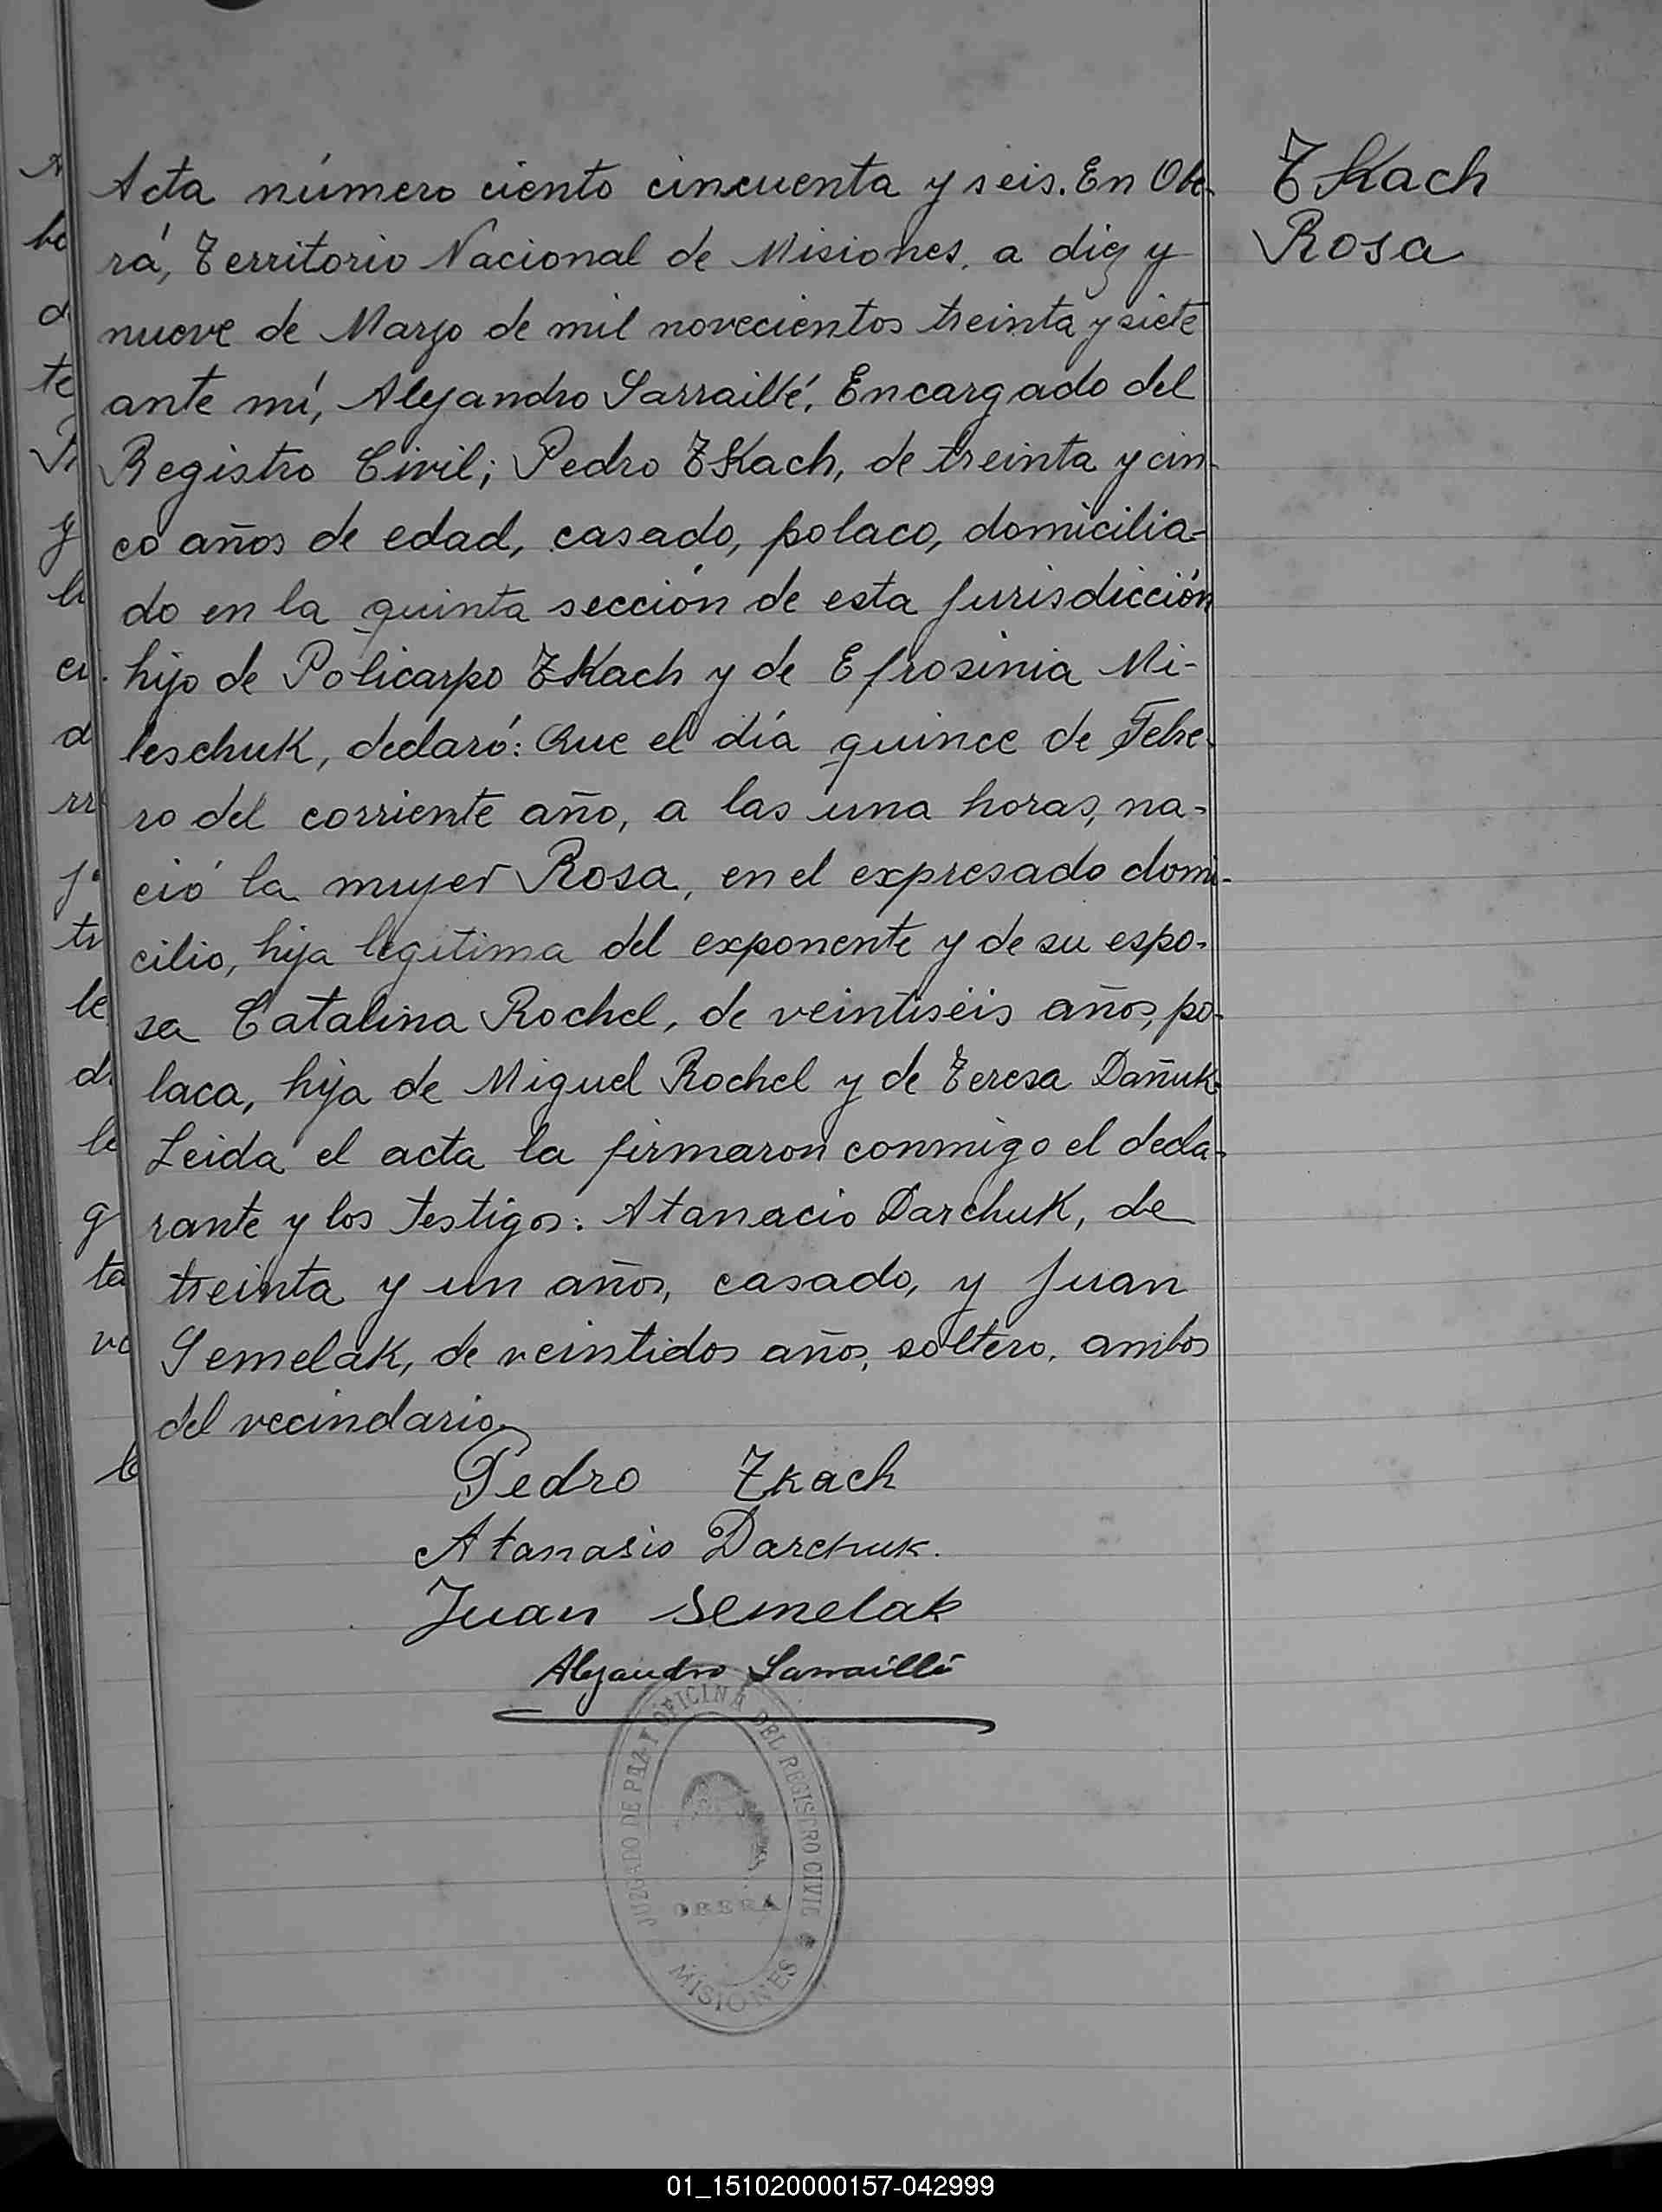 Acta número ciento cincuenta y seis. En Obe-
rá, Territorio Nacional de Misiones, a diez y
nueve de Marzo de mil novecientos treinta y siete
ante mí, Alejandro Sarraillé, Encargado del
Registro Civil; Pedro TKach, de treinta y cin-
co años de edad, casado, polaco, domicilia-
do en la quinta sección de esta jurisdicción
hijo de Policarpo TKach y de Efrosinia Mi-
leschuk, declaró: Que el día quince de Febre-
ro del corriente año, a las una horas, na-
ció la mujer Rosa, en el expresado domi-
cilio, hija legitima del exponente y de su espo-
sa Catalina Rochel, de veintiséis años, po-
laca, hija de Miguel Rochel y de Teresa Dañuk.
Leida el acta la firmaron conmigo el decla-
rante y los testigos: Atanacio Darchuk, de
treinta y un años, casado, y Juan
Semelak, de veintidos años, soltero, ambos
del vecindario
TKach
Rosa
Pedro Tkach
Atanasio Darchuk.
Juan Semelak
Alejandro Sarraillé
JUZGADO DE PAZ Y OFICINA DEL REGISTRO CIVIL
OBERA
MISIONES
01_151020000157-042999